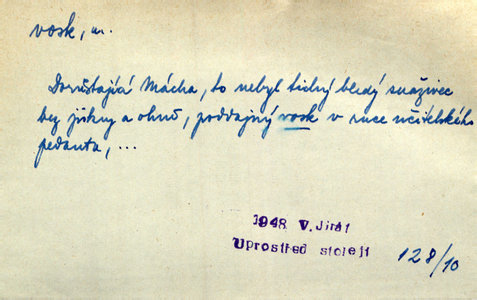 vosk, m.
Dorůstající Mácha, to nebyl žádný bledý snaživec
bez jiskry a ohně, poddajný vosk v ruce učitelského
pedanta, ...
1948 V. Jirát
Uprostřed století
128/10